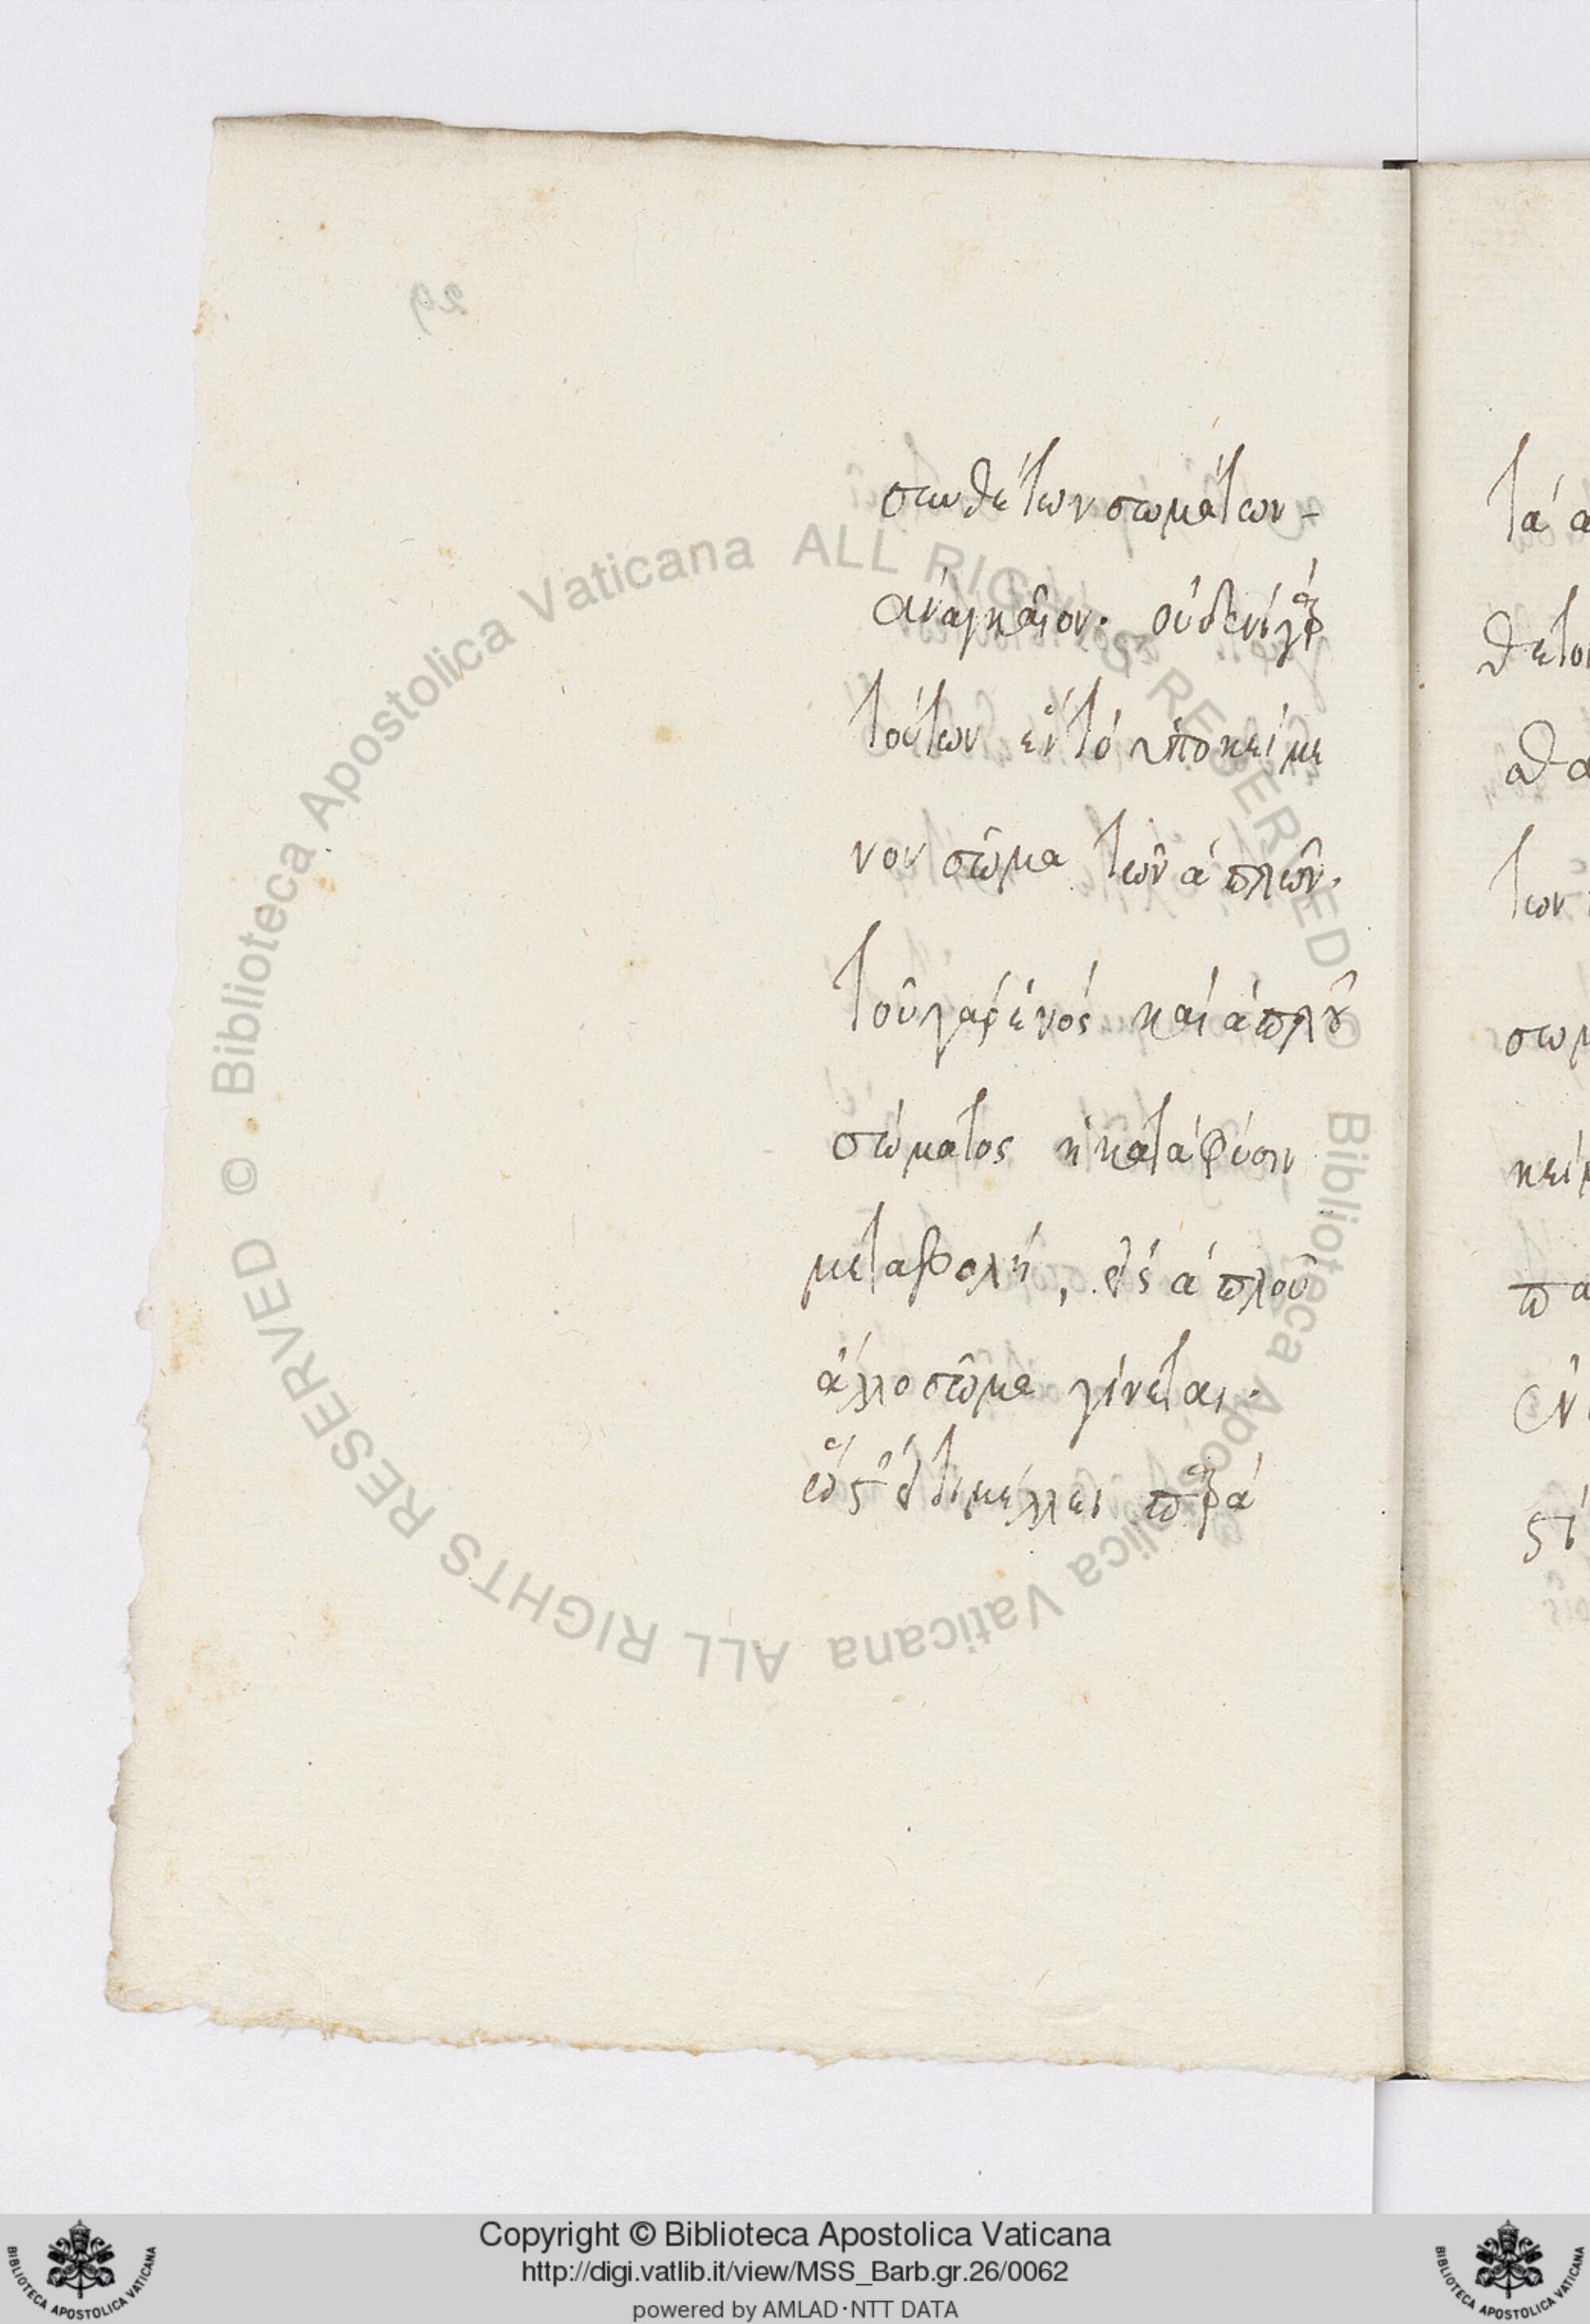 συνθέτων σωμάτων -
ἀναγκαῖον. οὐδενὶ γὰρ
τούτων ἓν τὸ ὑποκείμε
νον σῶμα τῶν ἁπλῶν.
τοῦ γὰρ ἑνὸς καὶ ἁπλοῦ
σώματος ἡ κατὰ φύσιν
μεταβολὴ, εἰς ἁπλοῦν
ἄλλο σῶμα γίνεται.
μέλλει
τὰ
θετο
των
σωμ
κεί
πα
29
© Biblioteca Apostolica Vaticana ALL RIGHTS RESERVED © Biblioteca Apostolica Vaticana ALL RIGHTS RESERVED
Copyright © Biblioteca Apostolica Vaticana
http://digi.vatlib.it/view/MSS_Barb.gr.26/0062
powered by AMLAD·NTT DATA
BIBLIOTECA APOSTOLICA VATICANA
BIBLIOTECA APOSTOLICA VATICANA